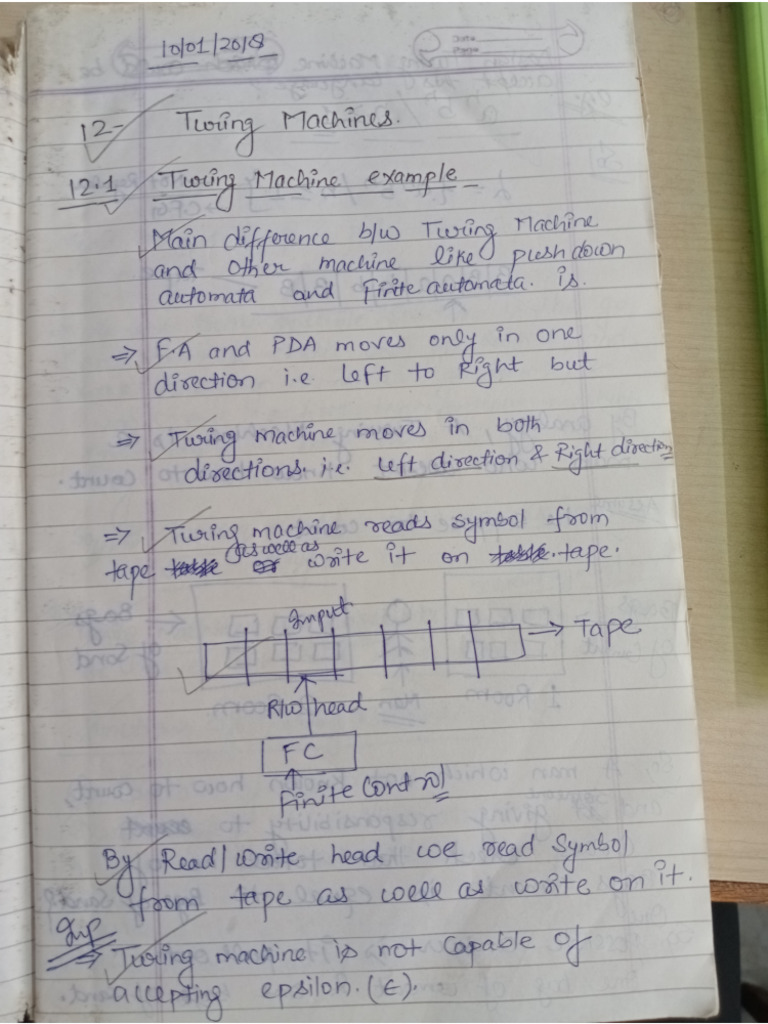 10/01/2018
12- Turing Machines.
12.1 Turing Machine example
Main difference b/w Turing Machine
and other machine like pushdown
automata and Finite automata. is.
⇒ FA and PDA moves only in one
direction i.e. Left to Right but
⇒ Turing machine moves in both
directions. i.e. Left direction & Right direction
⇒ Turing machine reads symbol from
tape as well as write it on tape.
Input
→ Tape
R/W head
FC
Finite Control
By Read/write head we read symbol
from tape as well as write on it.
Imp
⇒ Turing machine is not capable of
accepting epsilon. (ϵ).